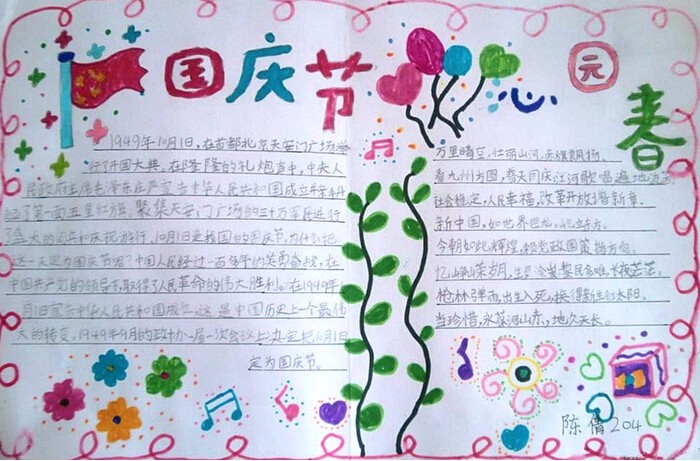 国庆节
1949年10月1日,在首都北京天安门广场举
行了开国大典,在隆隆的礼炮声中,中央人
民政府主席毛泽东庄严宣告中华人民共和国成立并亲手升
起了第一面五星红旗。聚集天安门广场的三十万军民进行
了盛大的阅兵和庆祝游行。10月1日是我国的国庆节,为什么把
这一天定为国庆节呢?中国人民经过一百多年的英勇奋战,在
中国共产党的领导下,取得了人民革命的伟大胜利。在1949年
月1日宣告中华人民共和国成立。这是中国历史上一个最伟
大的转变。1949年9月的政协一届一次会议上决定把10月1日
定为国庆节。
沁 园
春
万里晴空,壮丽山河,赤旗飘扬。
看九州方圆,普天同庆,江河歌唱
社会稳定,人民幸福,改革开放谱新章。
新中国,如世界巨龙,屹立东方。
今朝如此辉煌,
忆峥嵘岁月,黎民多难,长夜茫茫。
枪林弹雨,出生入死,换得新生红太阳。
当珍惜,永葆江山赤,地久天长。
陈倩204